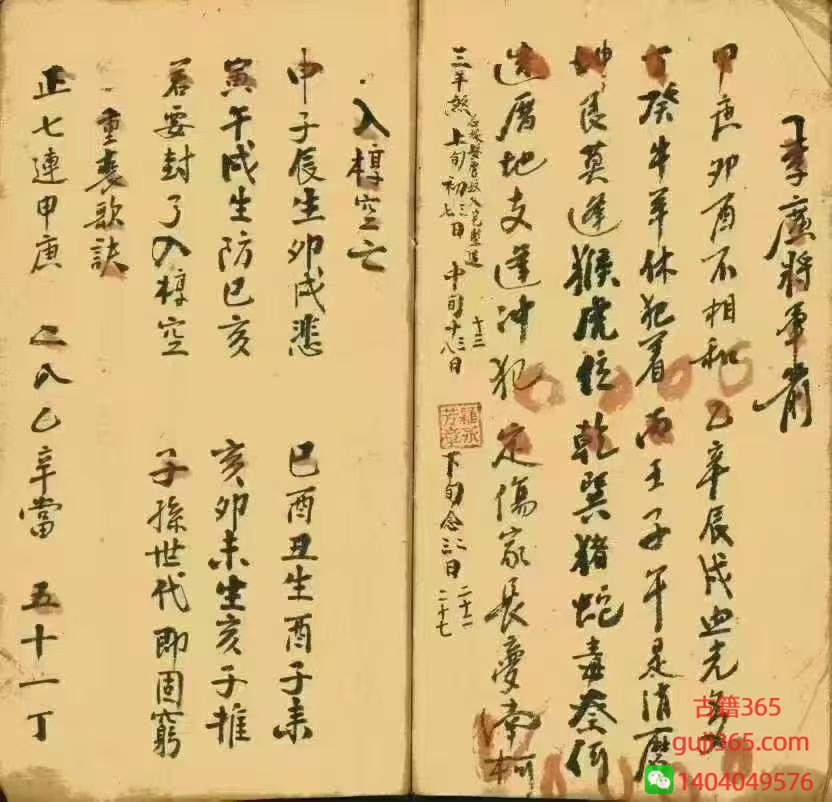 李廣將軍箭
甲庚卯酉不相和 乙辛辰戌血光多
丁癸牛羊休犯着 丙壬子午是消磨
坤艮莫逢猴虎位 乾巽猪蛇毒奈何
造曆地支逢冲犯 定傷家長夢南柯
入宅豎造
上旬初三七日 十三 中旬十三八日 下旬念二三日 二十一 二十七
芳章
入槨空亡
申子辰生卯戌悲 巳酉丑生酉子未
寅午戌生防巳亥 亥卯未生亥子推
若要封了入槨空 子孫世代即固窮
一重喪歌訣
正七連甲庚 二八乙辛當 五十一丁
古籍365
guji365.com
1404049576